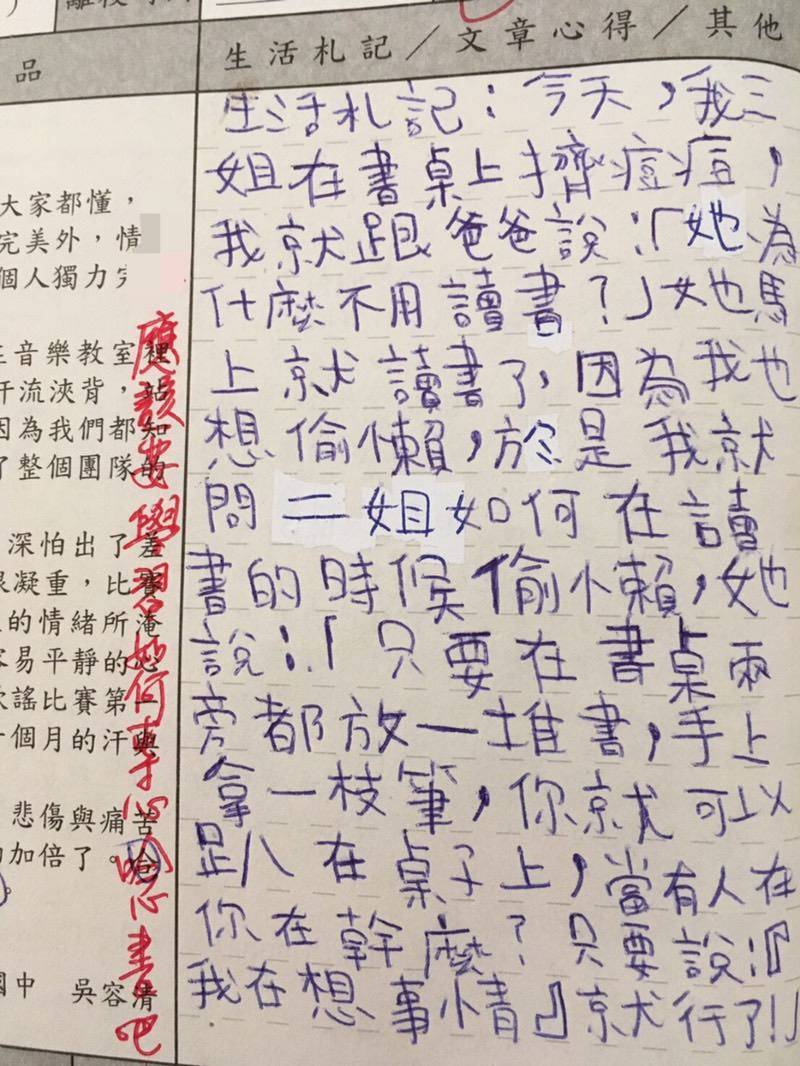 生活札記／文章心得／其他
品
生活札記：今天，我三
姐在書桌上擠痘痘，
我就跟爸爸說：「她為
什麼不用讀書？」她馬
上就讀書了，因為我也
想偷懶，於是我就
問二姐如何在讀
書的時候偷懶，她
說：「只要在書桌兩
旁都放一堆書，手上
拿一枝筆，你就可以
趴在桌子上，當有人在
你在幹麼？只要說：『
我在想事情』就行了!」
大家都懂，
完美外，情
個人獨力完
音樂教室裡
汗流浹背，站
因為我們都知
了整個團隊的
深怕出了差
凝重，比賽
的情緒所淹
容易平靜的心
謠比賽第一
個月的汗與
悲傷與痛苦
加倍了。
國中 吳容清
應該要學習如何專心唸書吧